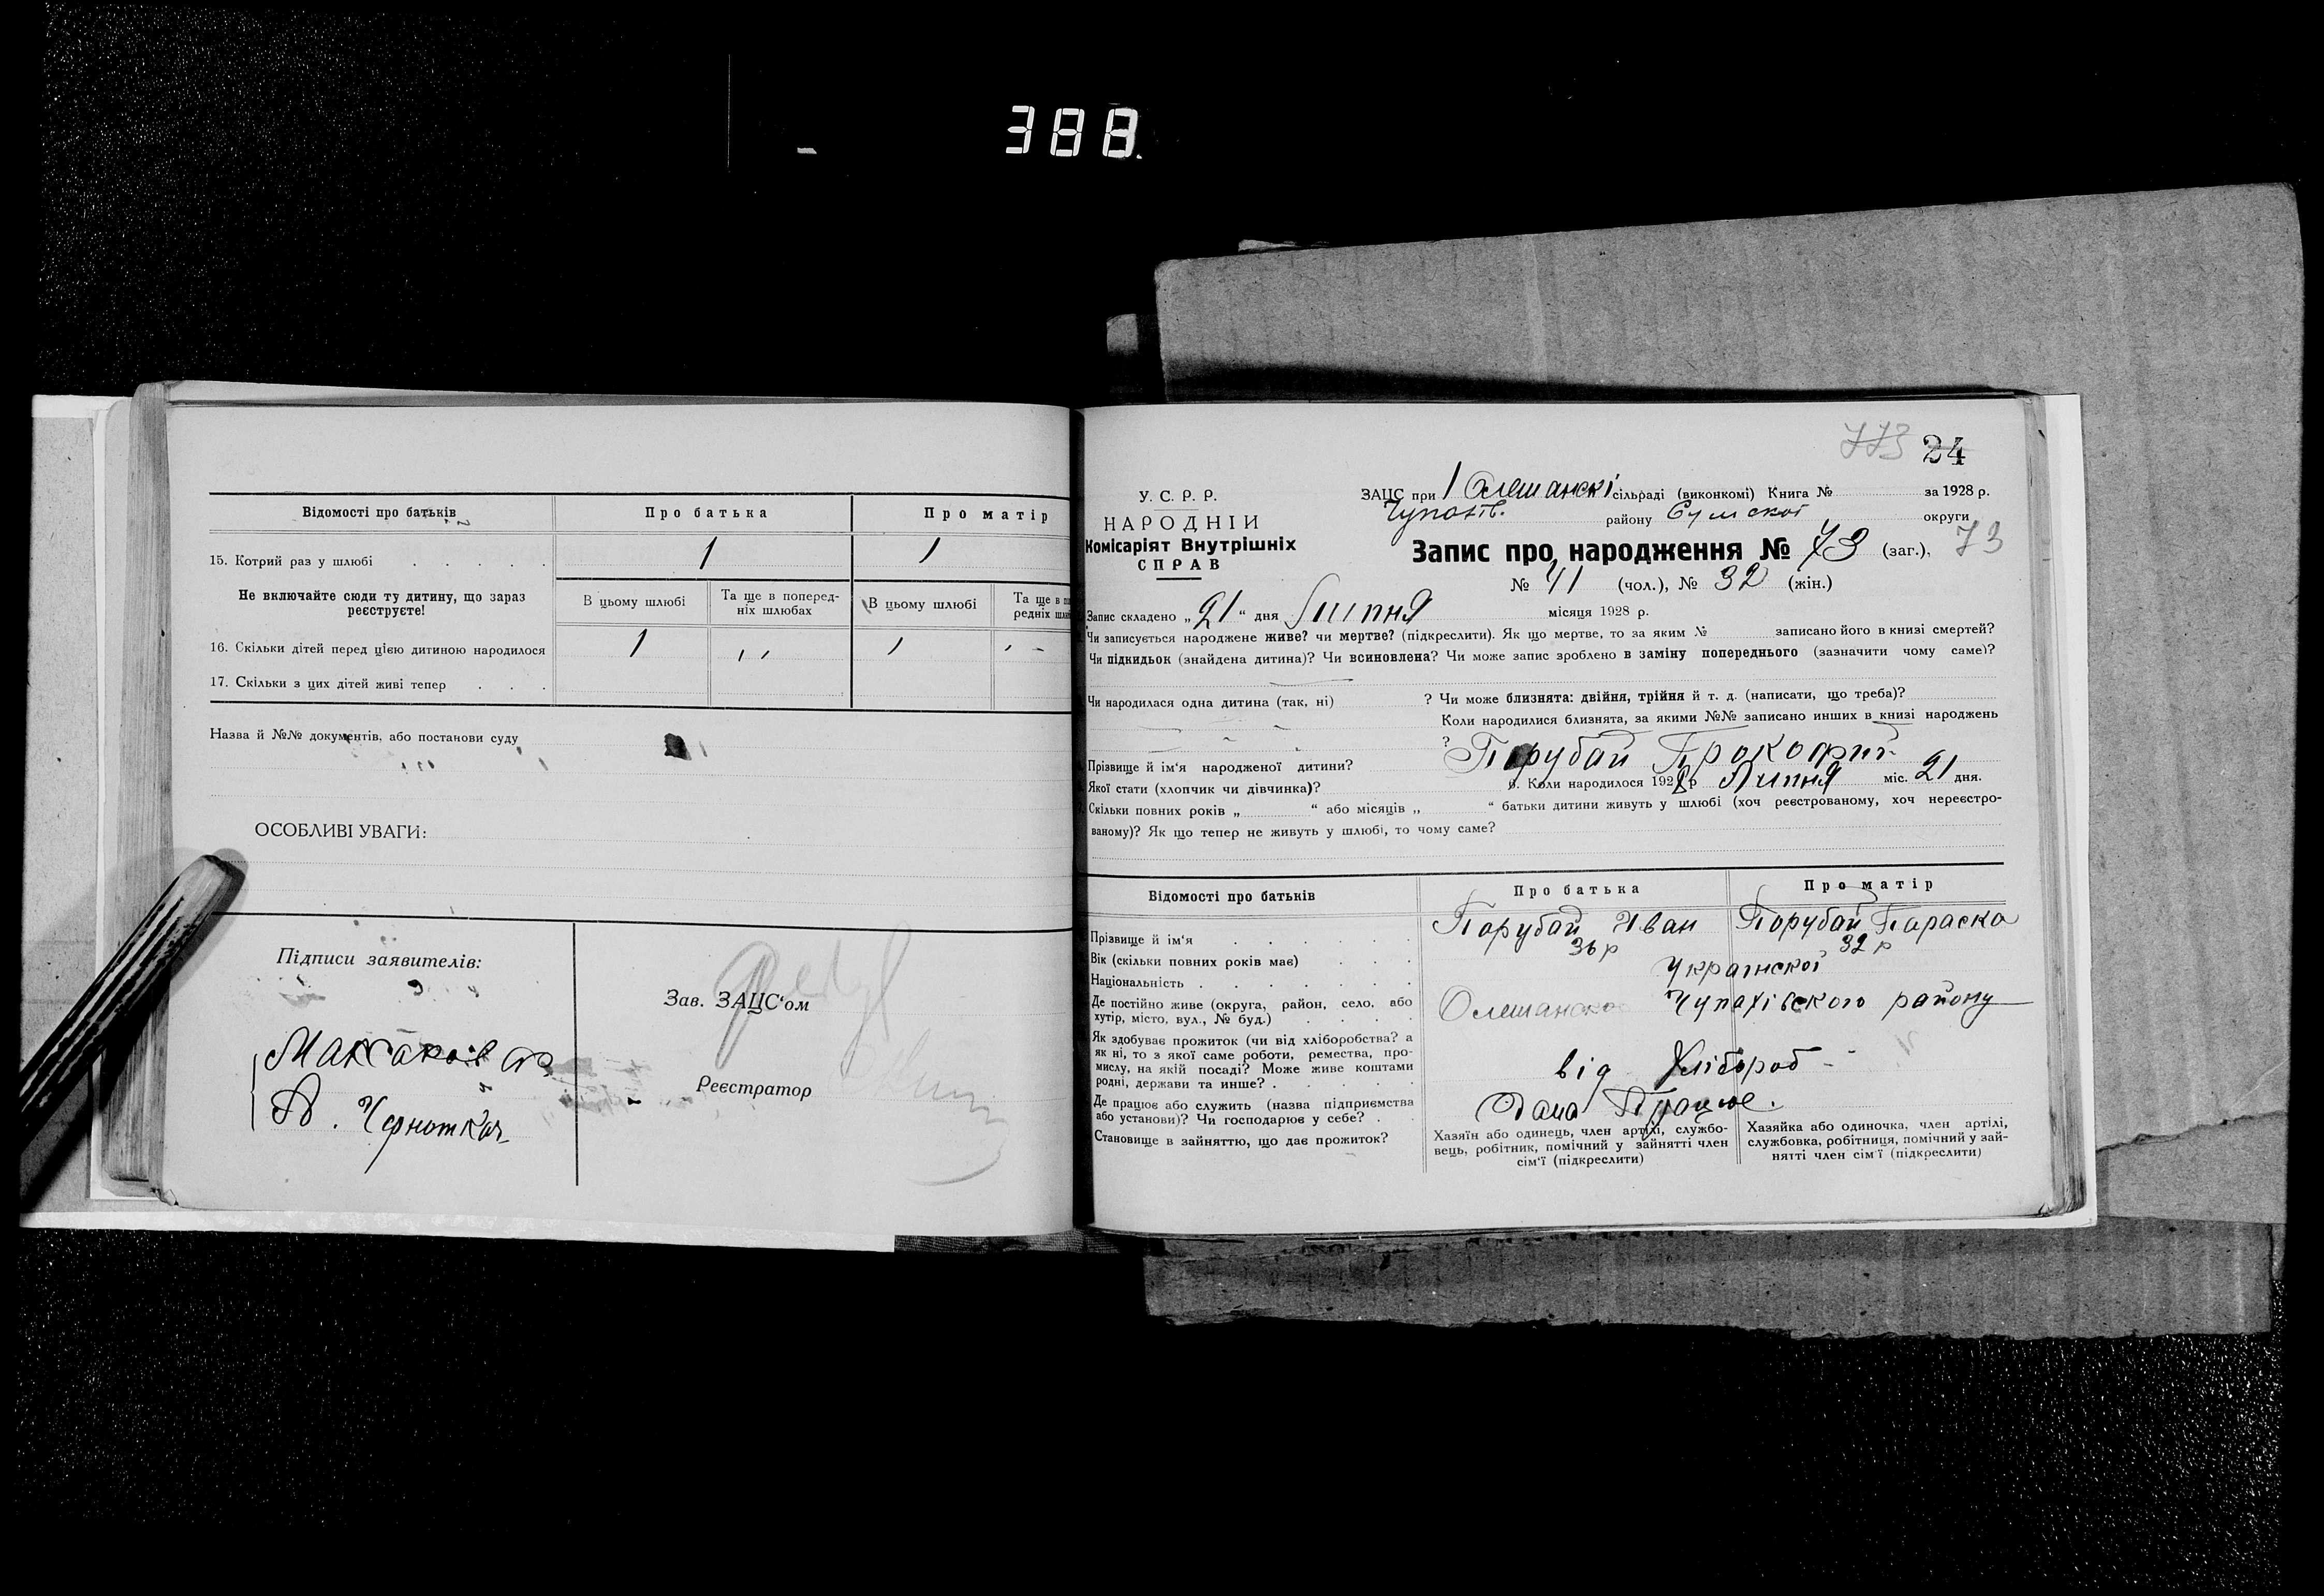 388.
Відомості про батьків
Про батька
Про матір
15. Котрий раз у шлюбі
1
1
Не включайте сюди ту дитину, що зараз реєструєте!
В цьому шлюбі
Та ще в поперед-
ніх шлюбах
В цьому шлюбі
Та ще в
редніх
16. Скільки дітей перед цією дитиною народилося
1
1
17. Скільки з цих дітей живі тепер
Назва й №№ документів, або постанови суду
ОСОБЛИВІ УВАГИ:
Підписи заявителів:
Зав. ЗАЦС‘ом
Реєстратор
773 24
У. С. Р. Р.
НАРОДНІЙ
Комісаріят Внутрішніх
СПРАВ
ЗАЦС при 1 Олешанскі сільраді (виконкомі) Книга № за 1928 р.
Чупахів. району Сумскої округи
Запис про народження № 73 (заг.), 73
№ 41 (чол.), № 32 (жін.)
Запис складено „21“ дня Липня місяця 1928 р.
Чи записується народжене живе? чи мертве? (підкреслити). Як що мертве, то за яким № записано його в книзі смертей?
Чи підкидьок (знайдена дитина)? Чи всиновлена? Чи може запис зроблено в заміну попереднього (зазначити чому саме)?
Чи народилася одна дитина (так, ні) ? Чи може близнята: двійня, трійня й т. д. (написати, що треба)?
Коли народилися близнята, за якими №№ записано инших в книзі народжень
?
Прізвище й ім‘я народженої дитини? Порубай Прокофий
Якої стати (хлопчик чи дівчинка)? 6. Коли народилося 1928 р Липня міс. 21 дня.
Скільки повних років „ “ або місяців „ “ батьки дитини живуть у шлюбі (хоч реєстрованому, хоч нереєстро-
ваному)? Як що тепер не живуть у шлюбі, то чому саме?
Відомості про батьків
Про батька
Про матір
Прізвище й ім‘я
Порубай Иван
Порубай Параска
Вік (скільки повних років має)
36 р
32 р
Національність
Украінскої
Де постійно живе (округа, район, село, або
хутір, місто, вул., № буд.)
Олешанское Чупахівского району
Як здобуває прожиток (чи від хліборобства? а
як ні, то з якої саме роботи, ремества, про-
мислу, на якій посаді? Може живе коштами
родні, держави та инше?
від Хлібороб -
Де працює або служить (назва підприємства
або установи)? Чи господарює у себе?
Дома Працює.
Становище в зайняттю, що дає прожиток?
Хазяїн або одинець, член артілі, службо-
вець, робітник, помічний у зайнятті член
сім‘ї (підкреслити)
Хазяйка або одиночка, член артілі,
службовка, робітниця, помічний у зай-
нятті член сім‘ї (підкреслити)